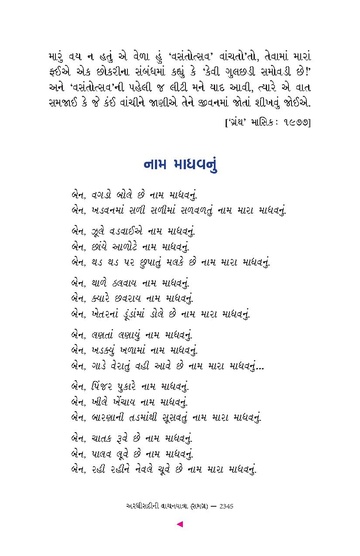 મારું વય ન હતું એ વેળા હું 'વસંતોત્સવ' વાંચતો'તો, તેવામાં મારાં
ફઈએ એક છોકરીના સંબંધમાં કહ્યું કે 'કેવી ગુલછડી સમોવડી છે!'
અને 'વસંતોત્સવ'ની પહેલી જ લીટી મને યાદ આવી, ત્યારે એ વાત
સમજાઈ કે જે કંઈ વાંચીને જાણીએ તેને જીવનમાં જોતાં શીખવું જોઈએ.
['ગ્રંથ' માસિક: ૧૯૭૭]
નામ માધવનું
બેન, વગડો બોલે છે નામ માધવનું.
બેન, ખડવનમાં સળી સળીમાં સળવળતું નામ મારા માધવનું.
બેન, ઝૂલે વડવાઈએ નામ માધવનું.
બેન, છાંયે આળોટે નામ માધવનું.
બેન, થડ થડ પર છુપાતું મલકે છે નામ મારા માધવનું.
બેન, થાળે ઠલવાય નામ માધવનું.
બેન, ક્યારે છવરાય નામ માધવનું.
બેન, ખેતરનાં ડૂંડાંમાં ડોલે છે નામ મારા માધવનું.
બેન, લણતાં લણાયું નામ માધવનું.
બેન, ખડક્યું ખળામાં નામ માધવનું.
બેન, ગાડે વેરાતું વહી આવે છે નામ મારા માધવનું...
બેન, પિંજર પુકારે નામ માધવનું.
બેન, ખીલે ખેંચાય નામ માધવનું.
બેન, બારણાની તડમાંથી સૂસવતું નામ મારા માધવનું.
બેન, ચાતક રૂવે છે નામ માધવનું.
બેન, પાલવ લૂવે છે નામ માધવનું.
બેન, રહી રહીને નેવલે ચૂવે છે નામ મારા માધવનું.
અરધીસદીની વાચનયાત્રા (સમગ્ર) — 2345